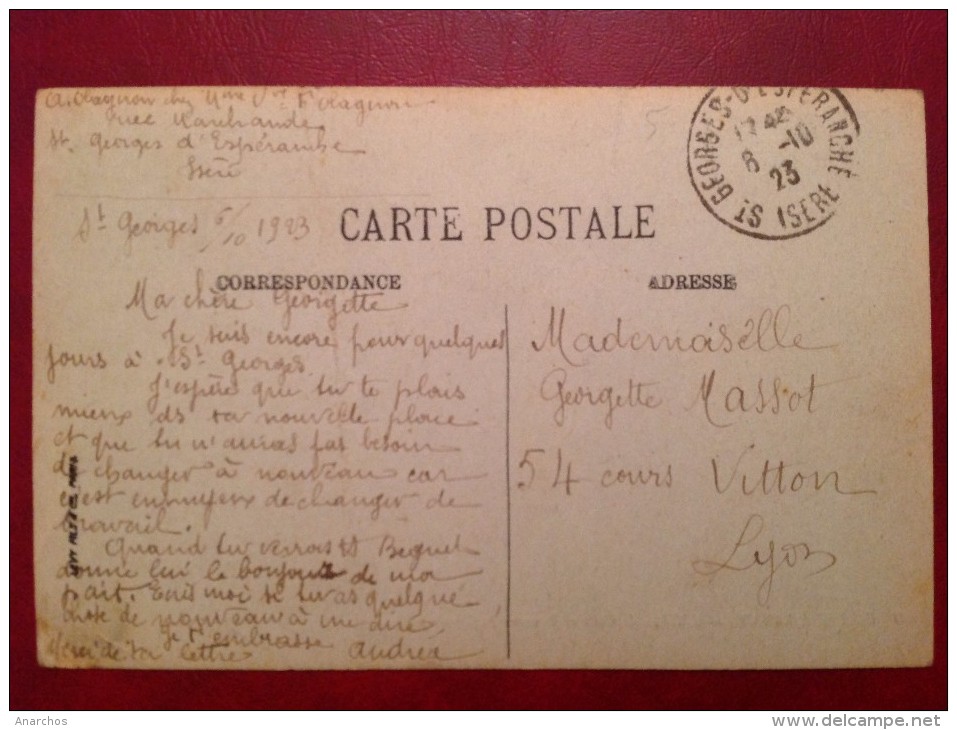 A. Olagnon chez Mme Vve F. Olagnon
née Marchande
St. Georges d'Espéranche
Isère
St Georges 6/10 1923
ST GEORGES-D'ESPERANCHE
17
6 -10
23
ISERE
CARTE POSTALE
CORRESPONDANCE
ADRESSE
Ma chère Georgette
Je suis encore pour quelques
jours à St Georges.
J'espère que tu te plais
mieux ds ta nouvelle place
et que tu n'auras pas besoin
de changer à nouveau car
c'est ennuyeux de changer de
travail.
Quand tu verras
donne lui le bonjour de ma
part. Écris moi si tu as quelque
chose de nouveau à me dire,
Je t'embrasse
Merci de ta lettre Andrea
Mademoiselle
Georgette Massot
54 cours Vitton
Lyon
Anarchos
www.delcampe.net